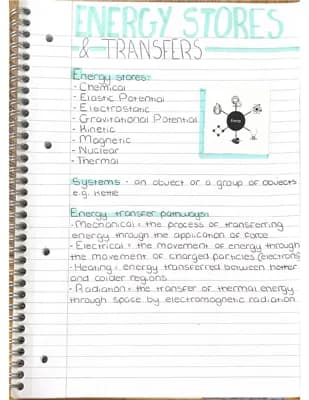 ENERGY STORES
& TRANSFERS
Energy stores:
- Chemical
- Elastic Potential
- Electrostatic
- Gravitational Potential
- Kinetic
- Magnetic
- Nuclear
- Thermal
Systems - an object or a group of objects
e.g. kettle
Energy transfer pathways:
- Mechanical = the process of transferring
energy through the application of force
- Electrical = the movement of energy through
the movement of charged particles (electrons)
- Heating = energy transferred between hotter
and colder regions
- Radiation = the transfer of thermal energy
through space by electromagnetic radiation